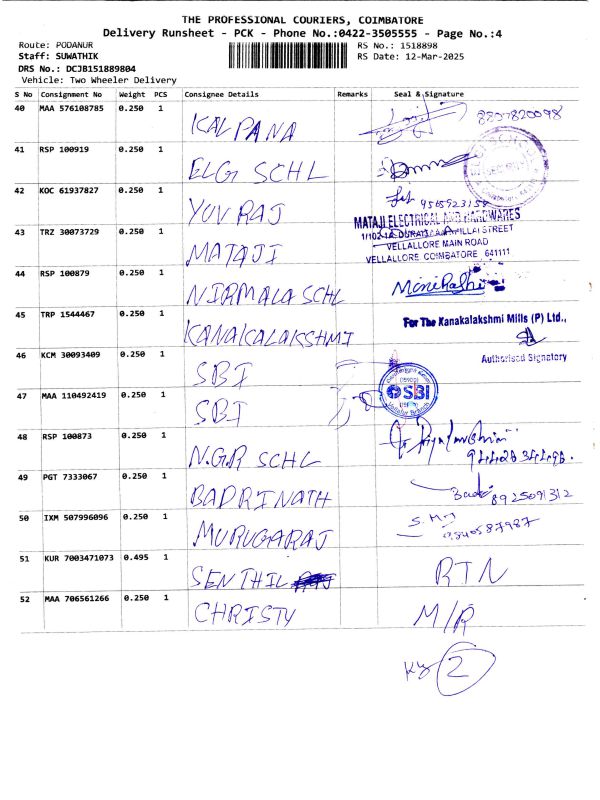 THE PROFESSIONAL COURIERS, COIMBATORE
Delivery Runsheet - PCK - Phone No.:0422-3505555 - Page No.:4
Route: PODANUR RS No.: 1518898
Staff: SUWATHIK RS Date: 12-Mar-2025
DRS No.: DCJB151889804
Vehicle: Two Wheeler Delivery
S No Consignment No Weight PCS Consignee Details Remarks Seal & Signature
40 MAA 576108785 0.250 1 KALPANA 8807820098
41 RSP 100919 0.250 1 ELG SCHL
42 KOC 61937827 0.250 1 YUVRAJ
MATAJI ELECTRICAL AND HARDWARES
43 TRZ 30073729 0.250 1 MATAJI
VELLALLORE MAIN ROAD
VELLALORE COIMBATORE 641111
44 RSP 100879 0.250 1 NIRMALA SCHL
45 TRP 1544467 0.250 1 KANAKALAKSHMI For The Kanakalakshmi Mills (P) Ltd.,
Authorised Signatory
46 KCM 30093409 0.250 1 SBI
47 MAA 110492419 0.250 1 SBI SBI
48 RSP 100873 0.250 1 N.G.R SCHL
49 PGT 7333067 0.250 1 BADRINATH 8925091312
50 IXM 507996096 0.250 1 MURUGARAJ
51 KUR 7003471073 0.495 1 SENTHIL RTN
52 MAA 706561266 0.250 1 CHRISTY M/R
2